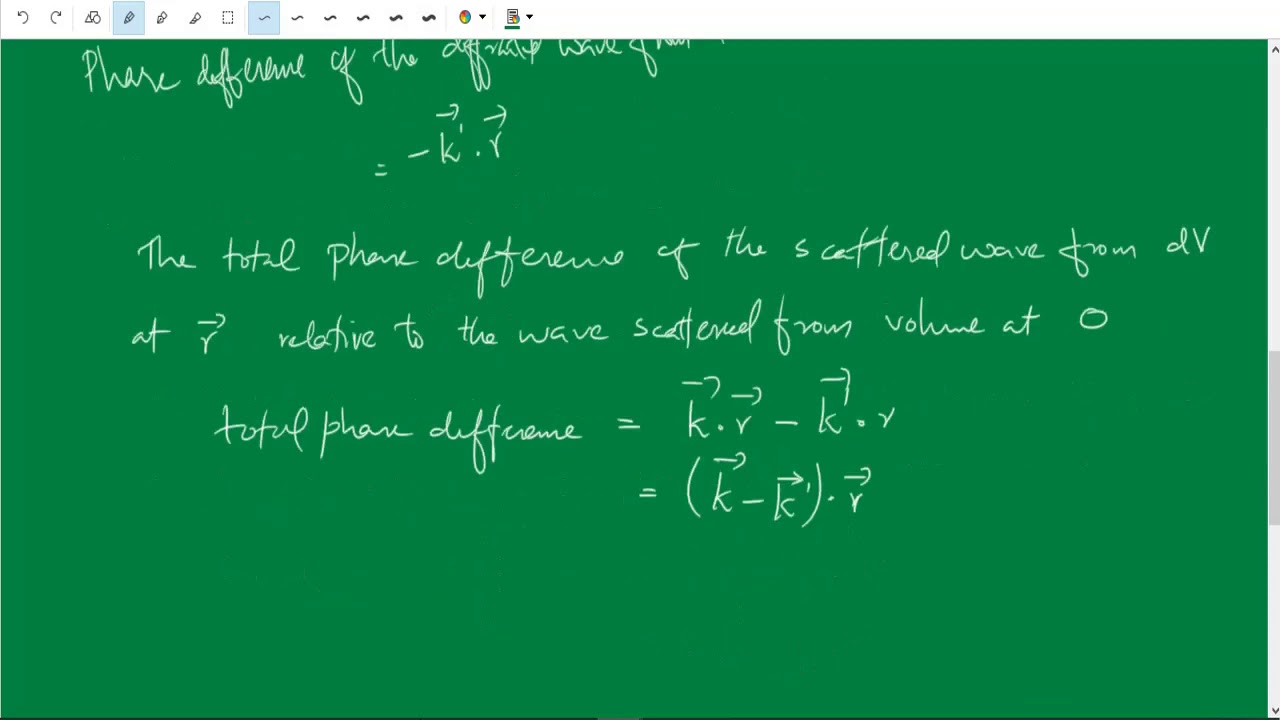 Phase difference of the diffracted wave from
= -k⃗'.r⃗
The total phase difference of the scattered wave from dV
at r⃗ relative to the wave scattered from volume at O
total phase difference = k⃗.r⃗ - k⃗.r
= (k⃗ - k⃗').r⃗